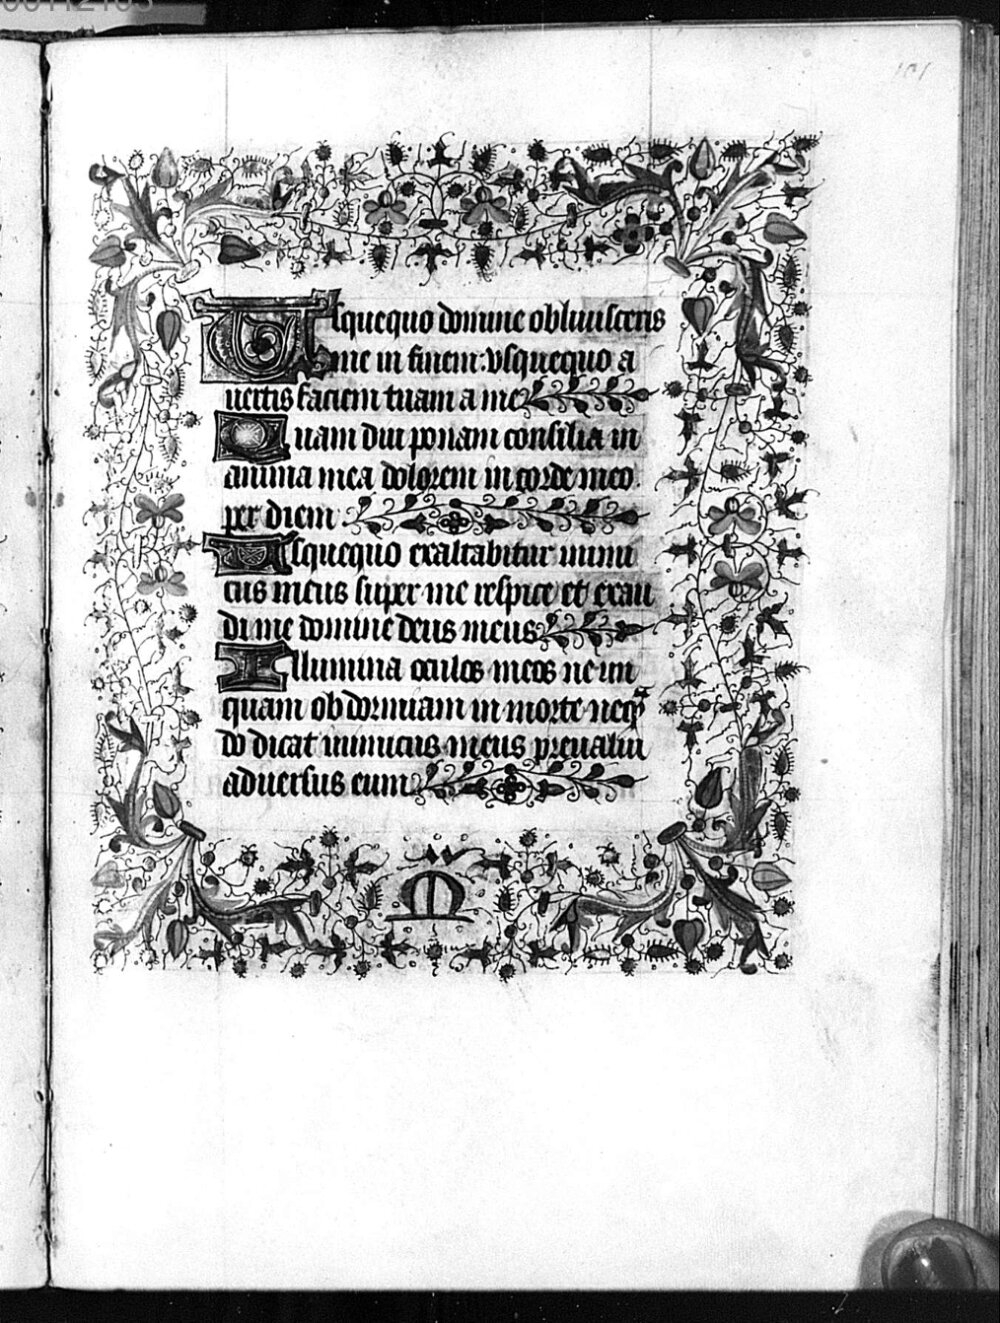 101
Usquequo domine obliuisceris
me in finem: vsquequo a
uertis faciem tuam a me
Quam diu ponam consilia in
anima mea dolorem in corde meo
per diem
Usquequo exaltabitur inimi
cus meus super me respice et exau
di me domine deus meus
Illumina oculos meos ne un
quam obdormiam in morte neqᵃ
do dicat inimicus meus preualui
aduersus eum
M